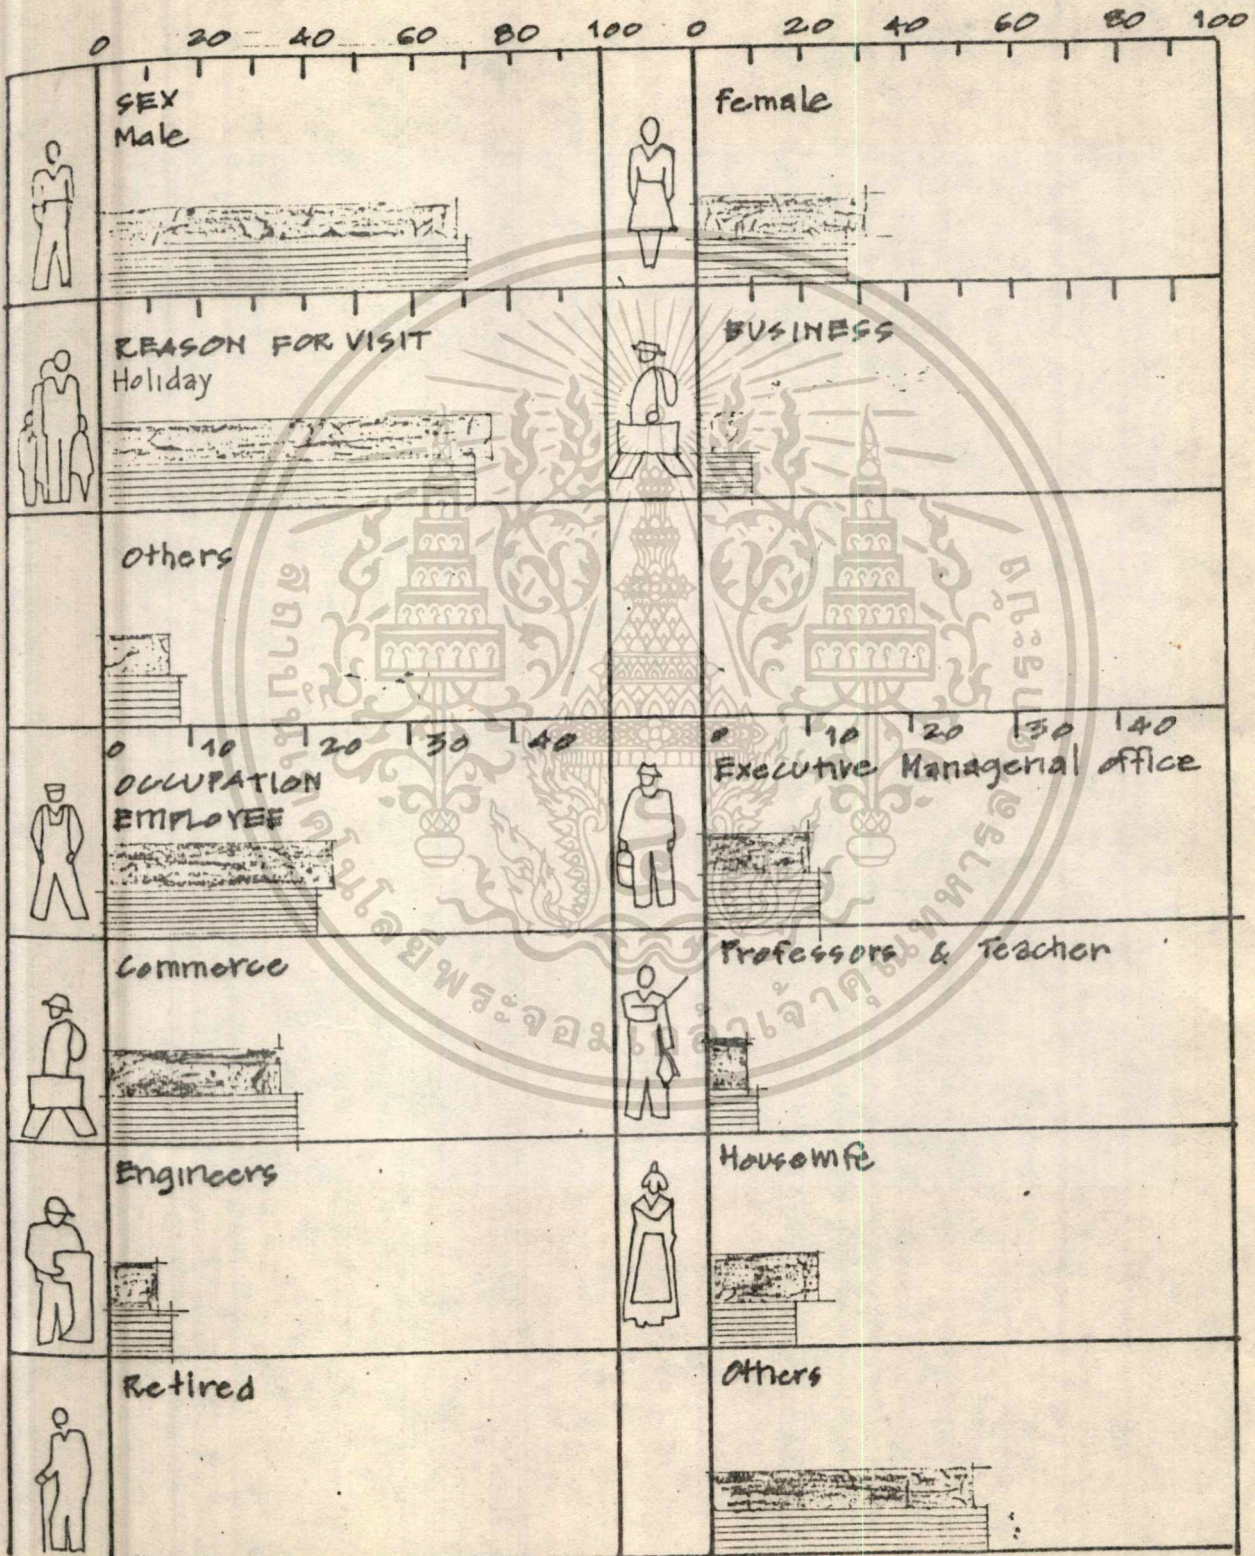 0 20 40 60 80 100 0 20 40 60 80 100
SEX
Male
female
REASON FOR VISIT
Holiday
BUSINESS
Others
0 10 20 30 40 0 10 20 30 40
OCCUPATION
EMPLOYEE
Executive Managerial office
Commerce
Professors & Teacher
Engineers
Housewife
Retired
Others
สถาบันเทคโนโลยีพระจอมเกล้าเจ้าคุณทหารลาดกระบัง